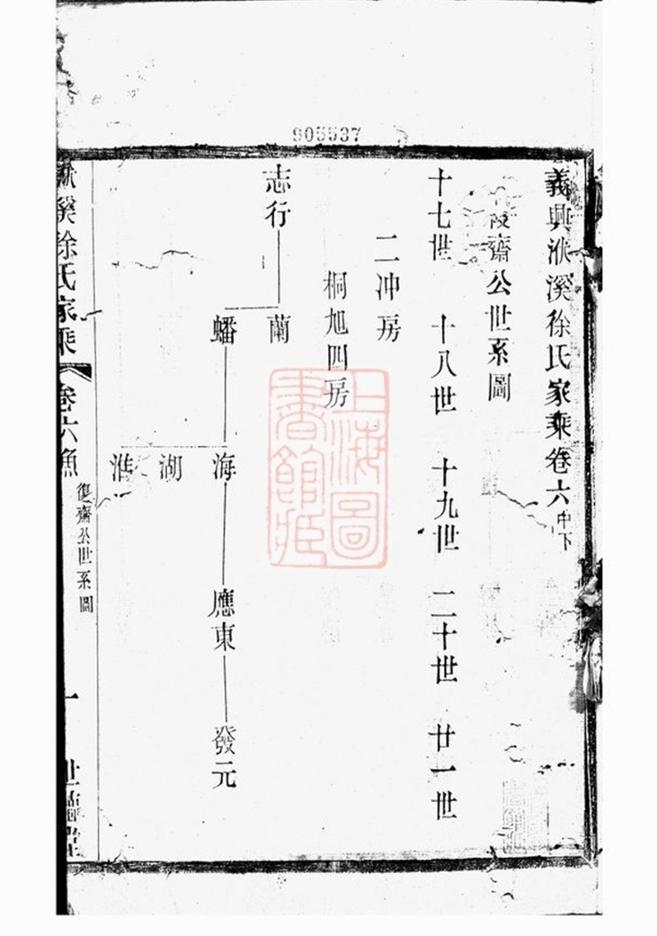 905537
義興洑溪徐氏家乘卷六中下
復齋公世系圖
十七世 十八世 十九世 二十世 廿一世
二冲房
桐旭四房
志行 蘭
蟠 海 應東 發元
湖
淮
洑溪徐氏家乘 卷六漁 復齋公世系圖 一
上海圖書館藏